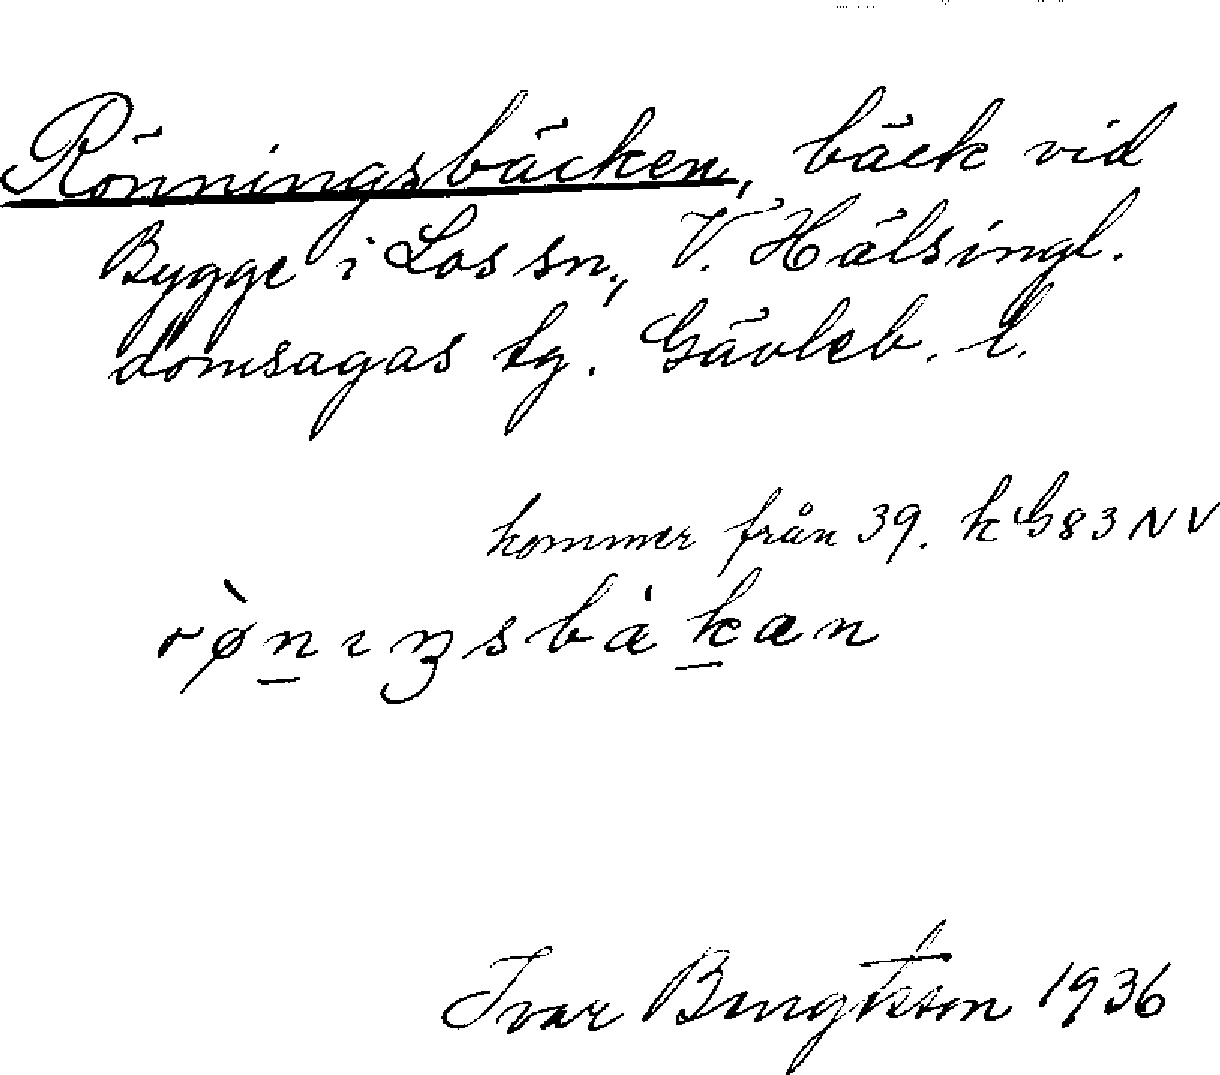 Rönningsbäcken, bäck vid
Bygge i Los sn, V. Hälsingl.
domsagas tg. Gävleb. l.
kommer från 39. k G83 NV
rø̀n̲ɪŋsbàk̲æn
Ivar Bengtsson 1936